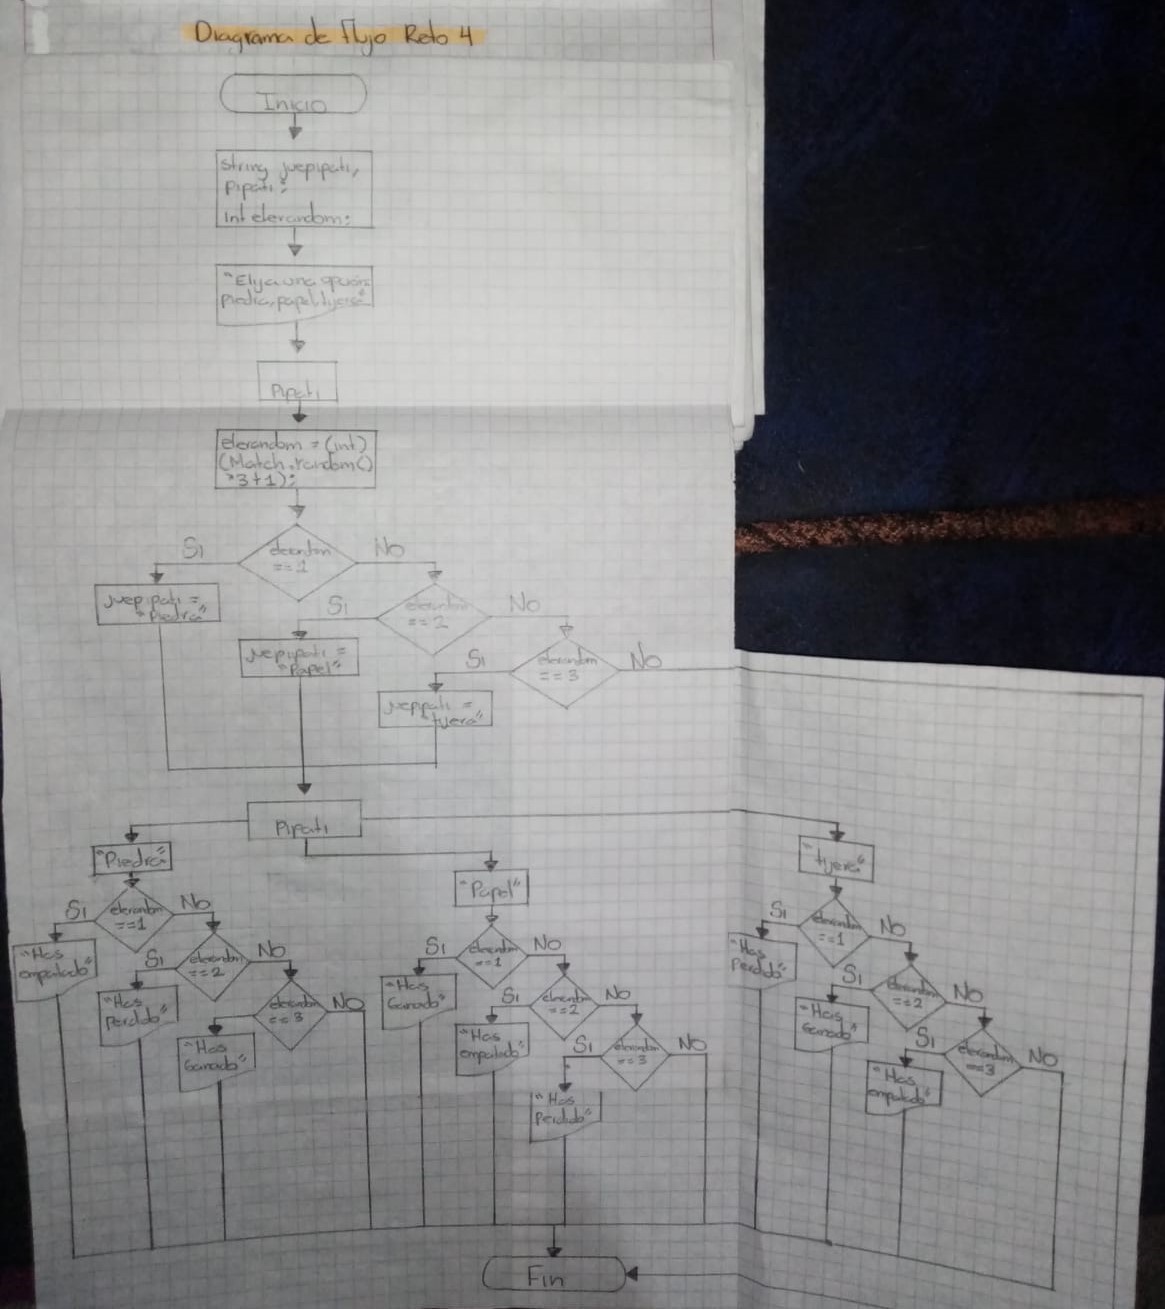 Diagrama de flujo Reto 4
Inicio
String juepipati,
Pipati;
Int elerandom;
"Elija una opción:
piedra, papel, tijera"
Pipati
elerandom = (int)
(Match.random()
*3+1);
elerandom
==1
Si
No
juepipati =
"Piedra"
elerandom
== 2
Si
No
juepipati =
"Papel"
elerandom
== 3
Si
No
juepipati =
"tijera"
Pipati
"Piedra"
elerandom
==1
Si
No
"Has
empatado"
elerandom
==2
Si
No
"Has
Perdido"
elerandom
== 3
No
"Has
Ganado"
"Papel"
elerandom
==1
Si
No
"Has
Ganado"
elerandom
==2
Si
No
"Has
empatado"
elerandom
==3
Si
No
"Has
Perdido"
"tijera"
elerandom
==1
Si
No
"Has
Perdido"
elerandom
==2
Si
No
"Has
Ganado"
elerandom
==3
Si
No
"Has
empatado"
Fin